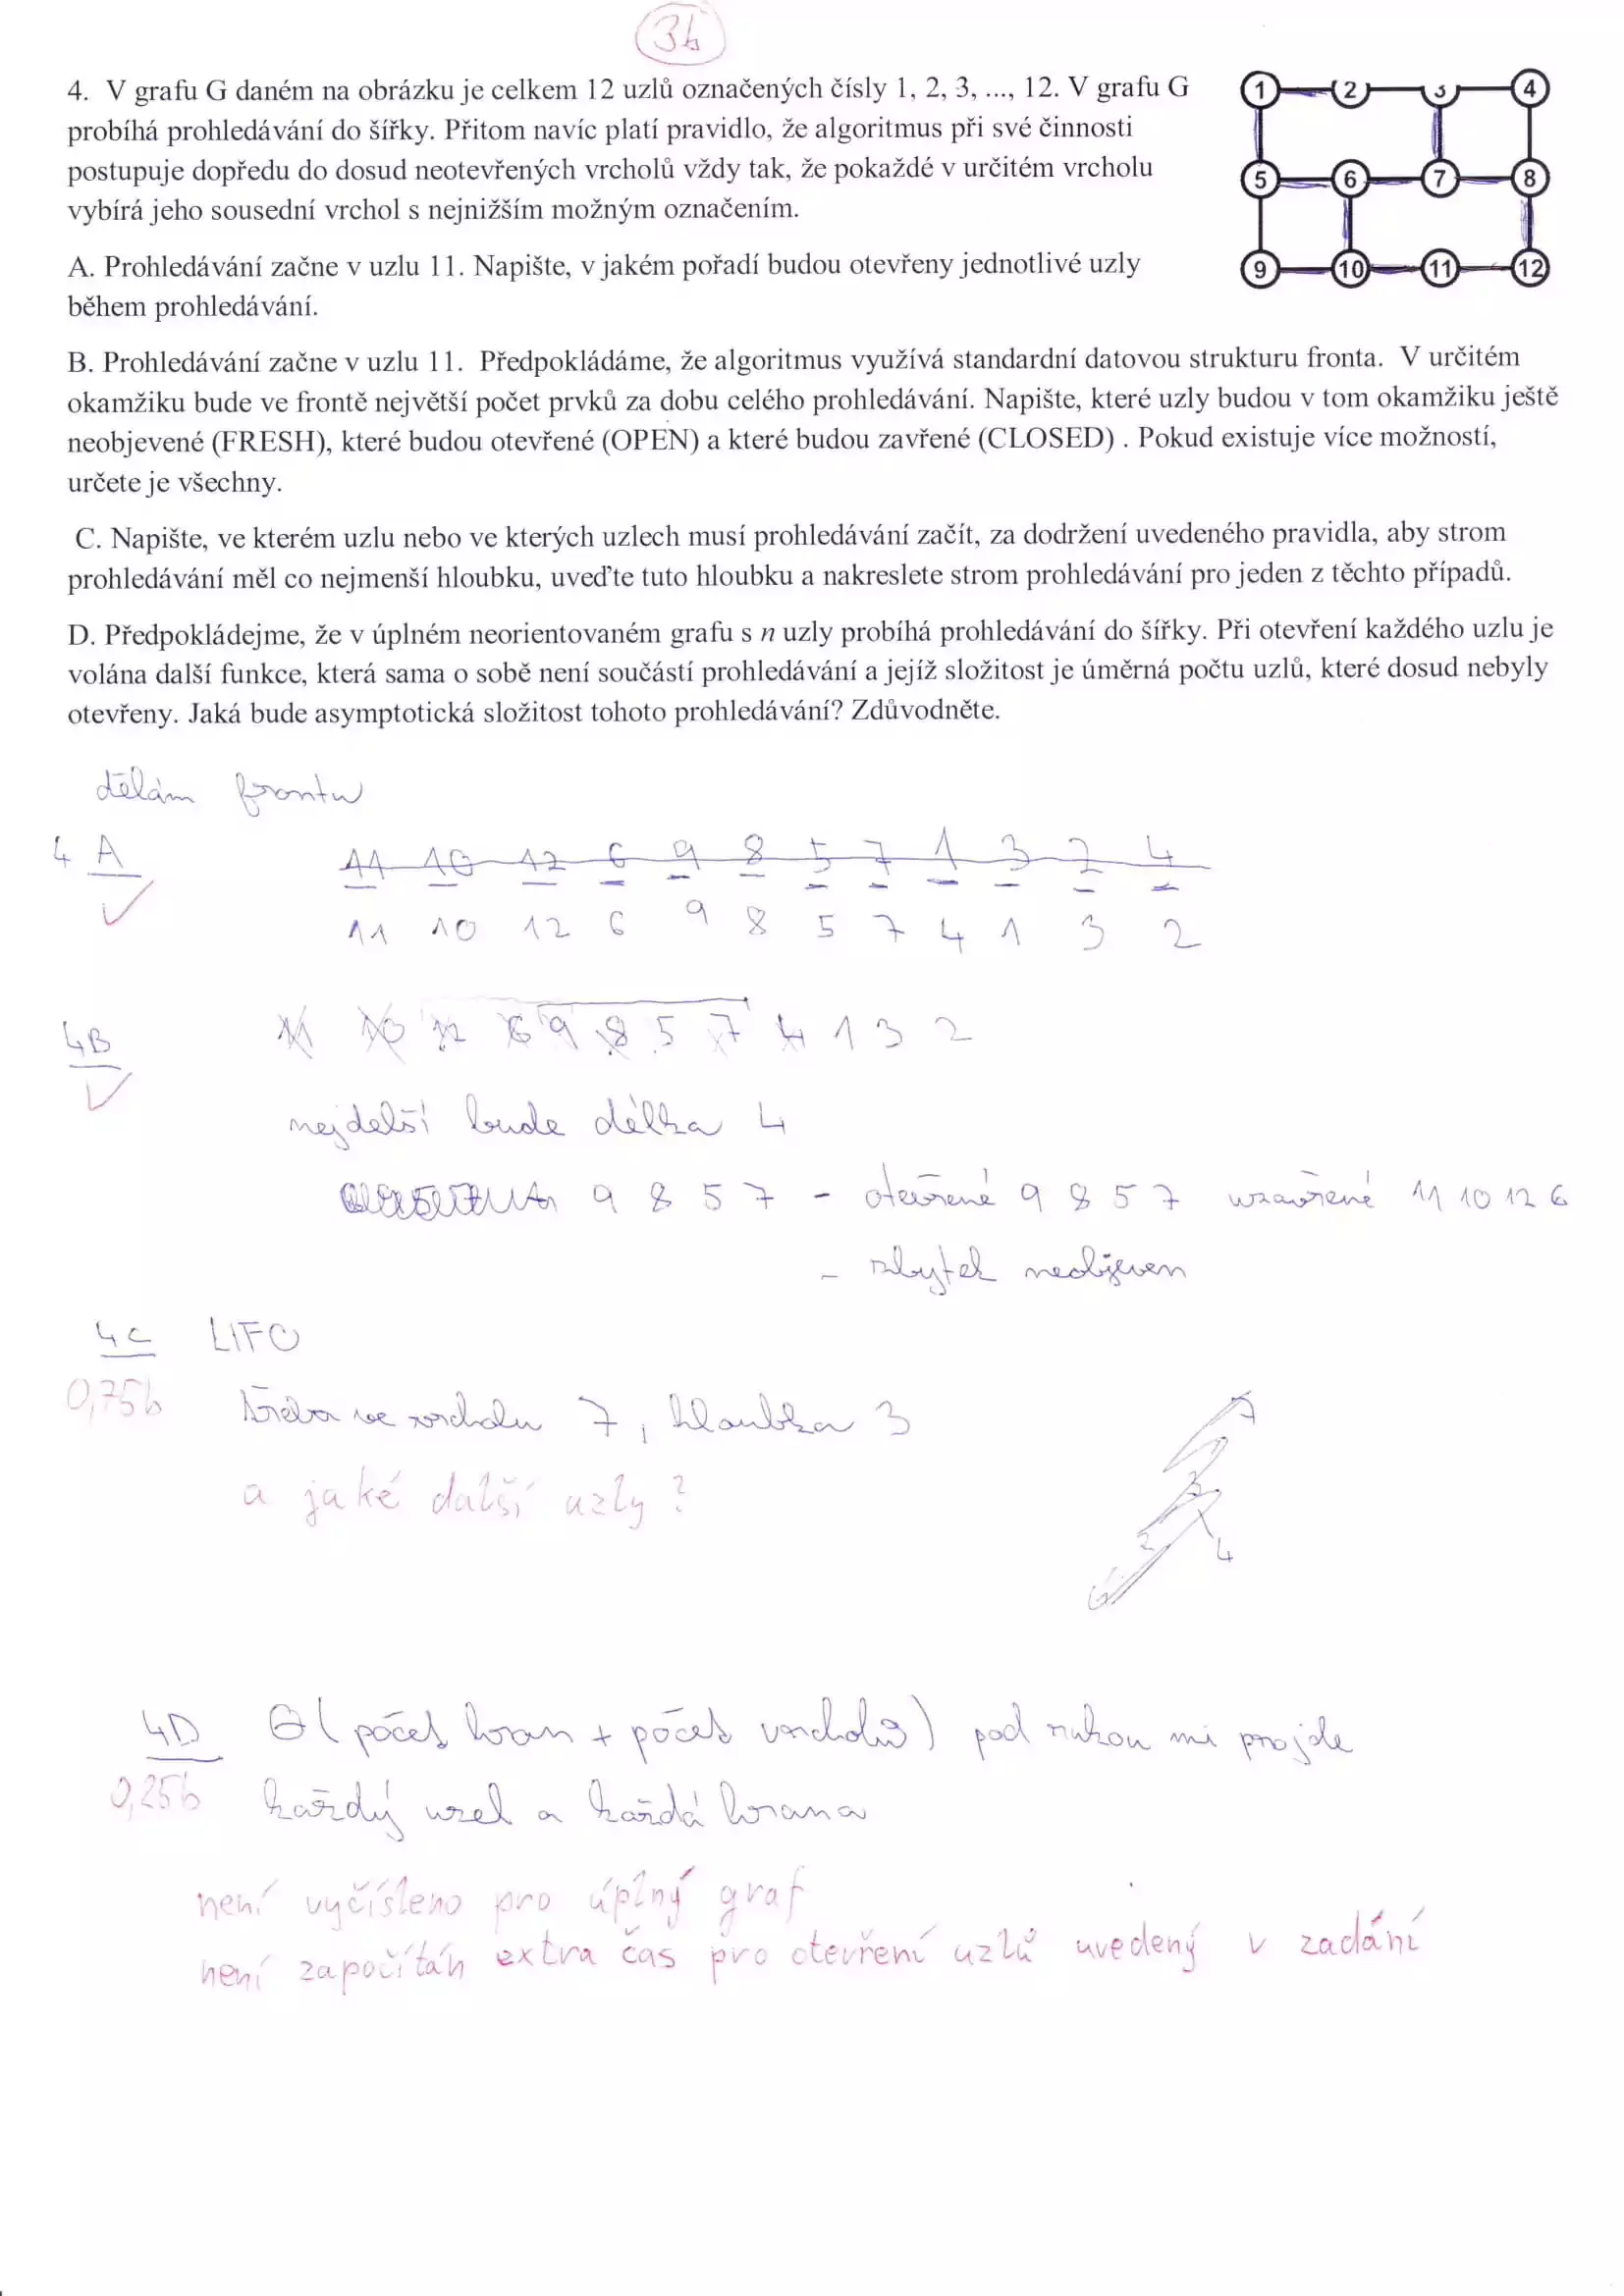 3b
4. V grafu G daném na obrázku je celkem 12 uzlů označených čísly 1, 2, 3, ..., 12. V grafu G
probíhá prohledávání do šířky. Přitom navíc platí pravidlo, že algoritmus při své činnosti
postupuje dopředu do dosud neotevřených vrcholů vždy tak, že pokaždé v určitém vrcholu
vybírá jeho sousední vrchol s nejnižším možným označením.
1 2 3 4
5 6 7 8
9 10 11 12
A. Prohledávání začne v uzlu 11. Napište, v jakém pořadí budou otevřeny jednotlivé uzly
během prohledávání.
B. Prohledávání začne v uzlu 11. Předpokládáme, že algoritmus využívá standardní datovou strukturu fronta. V určitém
okamžiku bude ve frontě největší počet prvků za dobu celého prohledávání. Napište, které uzly budou v tom okamžiku ještě
neobjevené (FRESH), které budou otevřené (OPEN) a které budou zavřené (CLOSED) . Pokud existuje více možností,
určete je všechny.
C. Napište, ve kterém uzlu nebo ve kterých uzlech musí prohledávání začít, za dodržení uvedeného pravidla, aby strom
prohledávání měl co nejmenší hloubku, uveďte tuto hloubku a nakreslete strom prohledávání pro jeden z těchto případů.
D. Předpokládejme, že v úplném neorientovaném grafu s n uzly probíhá prohledávání do šířky. Při otevření každého uzlu je
volána další funkce, která sama o sobě není součástí prohledávání a jejíž složitost je úměrná počtu uzlů, které dosud nebyly
otevřeny. Jaká bude asymptotická složitost tohoto prohledávání? Zdůvodněte.
dělám frontu
4 A 11 10 12 6 9 8 5 7 1 3 2 4
11 10 12 6 9 8 5 7 4 1 3 2
4B 11 10 12 6 9 8 5 7 4 1 3 2
nejdelší bude délka 4
9 8 5 7 - otevřené 9 8 5 7 uzavřené 11 10 12 6
- zbytek neobjeven
4C LIFO
0,75b třeba ve vrcholu 7, hloubka 3
a jaké další uzly?
7
3
2 4
4D Θ(počet hran + počet vrcholů) pod rukou mi projde
0,25b každý uzel a každá hrana
není vyčísleno pro úplný graf
není započítán extra čas pro otevření uzlů uvedený v zadání